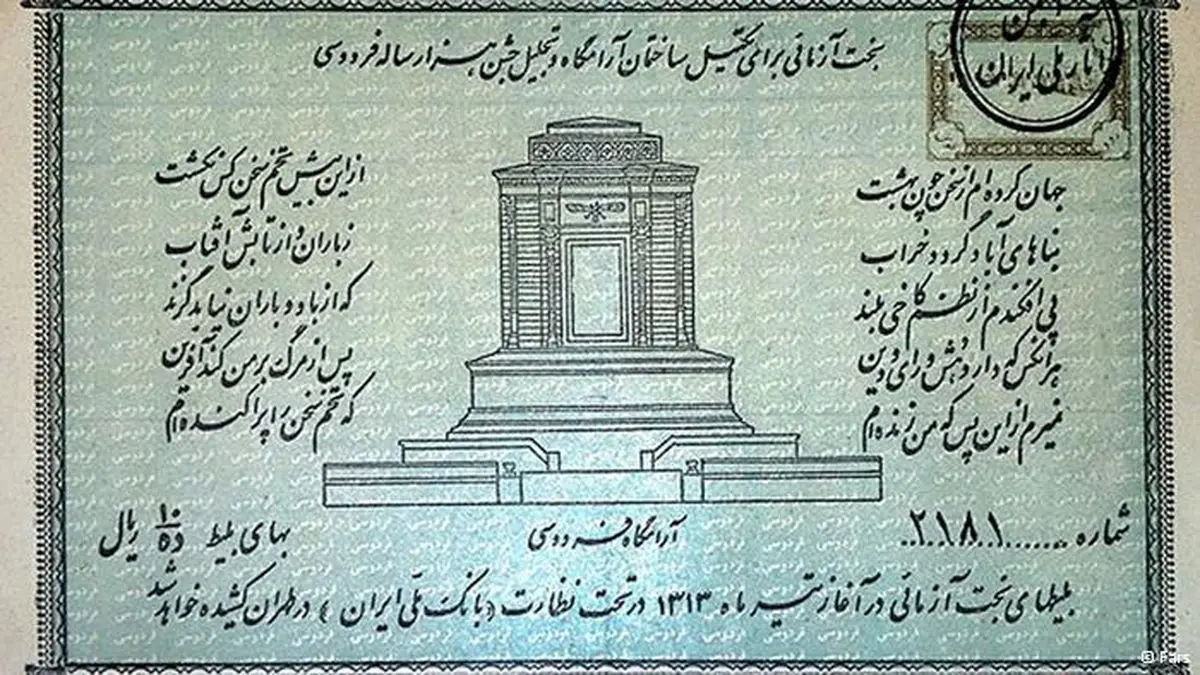 بخت آزمائی برای تکمیل ساختمان آرامگاه و تجلیل جشن هزار ساله فردوسی
انجمن
آثار ملی ایران
جهان کرده ام از سخن چون بهشت از این بیش تخم سخن کس نکشت
بناهای آباد گردد خراب ز باران و از تابش آفتاب
پی افکندم از نظم کاخی بلند که از باد و باران نیابد گزند
هر آنکس که دارد هش و رای و دین پس از مرگ بر من کند آفرین
نمیرم از این پس که من زنده ام که تخم سخن را پراکنده ام
شماره .......۲۱۸۱.. آرامگاه فردوسی بهای بلیط ۱۰ ده ریال
بلیطهای بخت آزمائی در آغاز تیر ماه ۱۳۱۳ در تحت نظارت (بانک ملی ایران) در طهران کشیده خواهد شد
© Fars